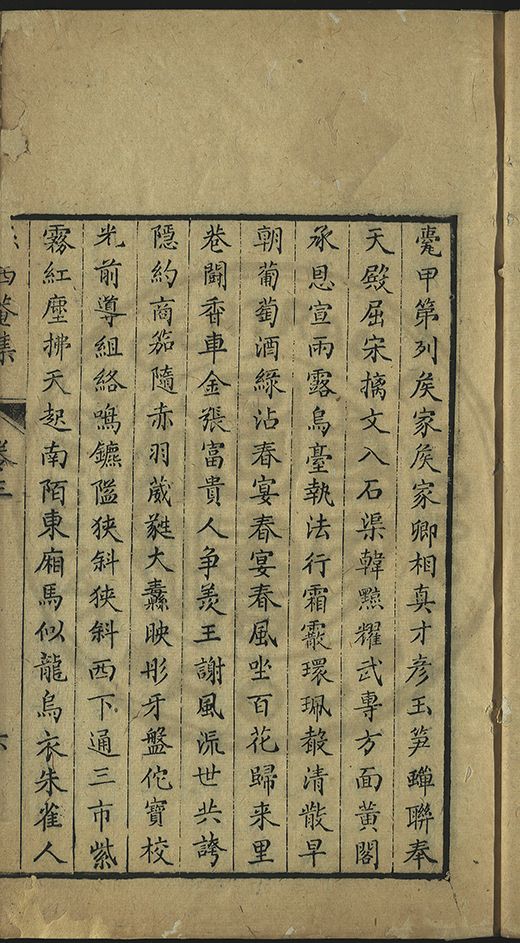 甍甲第列侯家侯家卿相真才彦玉笋蟬聯奉
天殿屈宋摛文入石渠韓黥耀武專方面黃閣
承恩宣雨露烏臺執法行霜霰環珮聲清散早
朝葡萄酒綠沾春宴春宴春風坐百花歸来里
巷鬭香車金張富貴人争羨王謝風流世共誇
隱約商笳隨赤羽葳蕤大纛映彤牙盤佗寶校
光前導組絡鳴鑣隘狹斜狹斜西下通三市紫
霧紅塵拂天起南陌東廂馬似龍烏衣朱雀人
西菴集 卷三